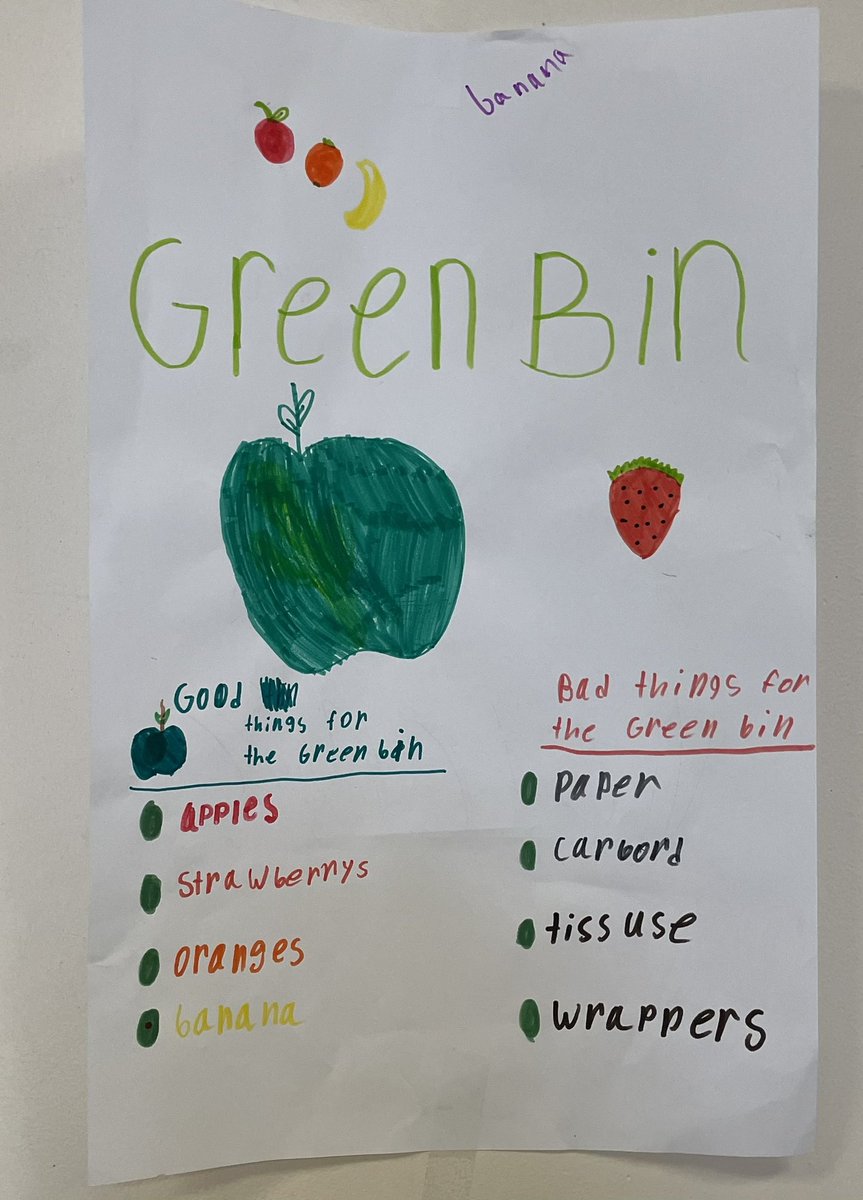 banana
Green Bin
Good
things for
the Green bin
apples
Strawberrys
oranges
banana
Bad things for
the Green bin
paper
carbord
tissuse
wrappers